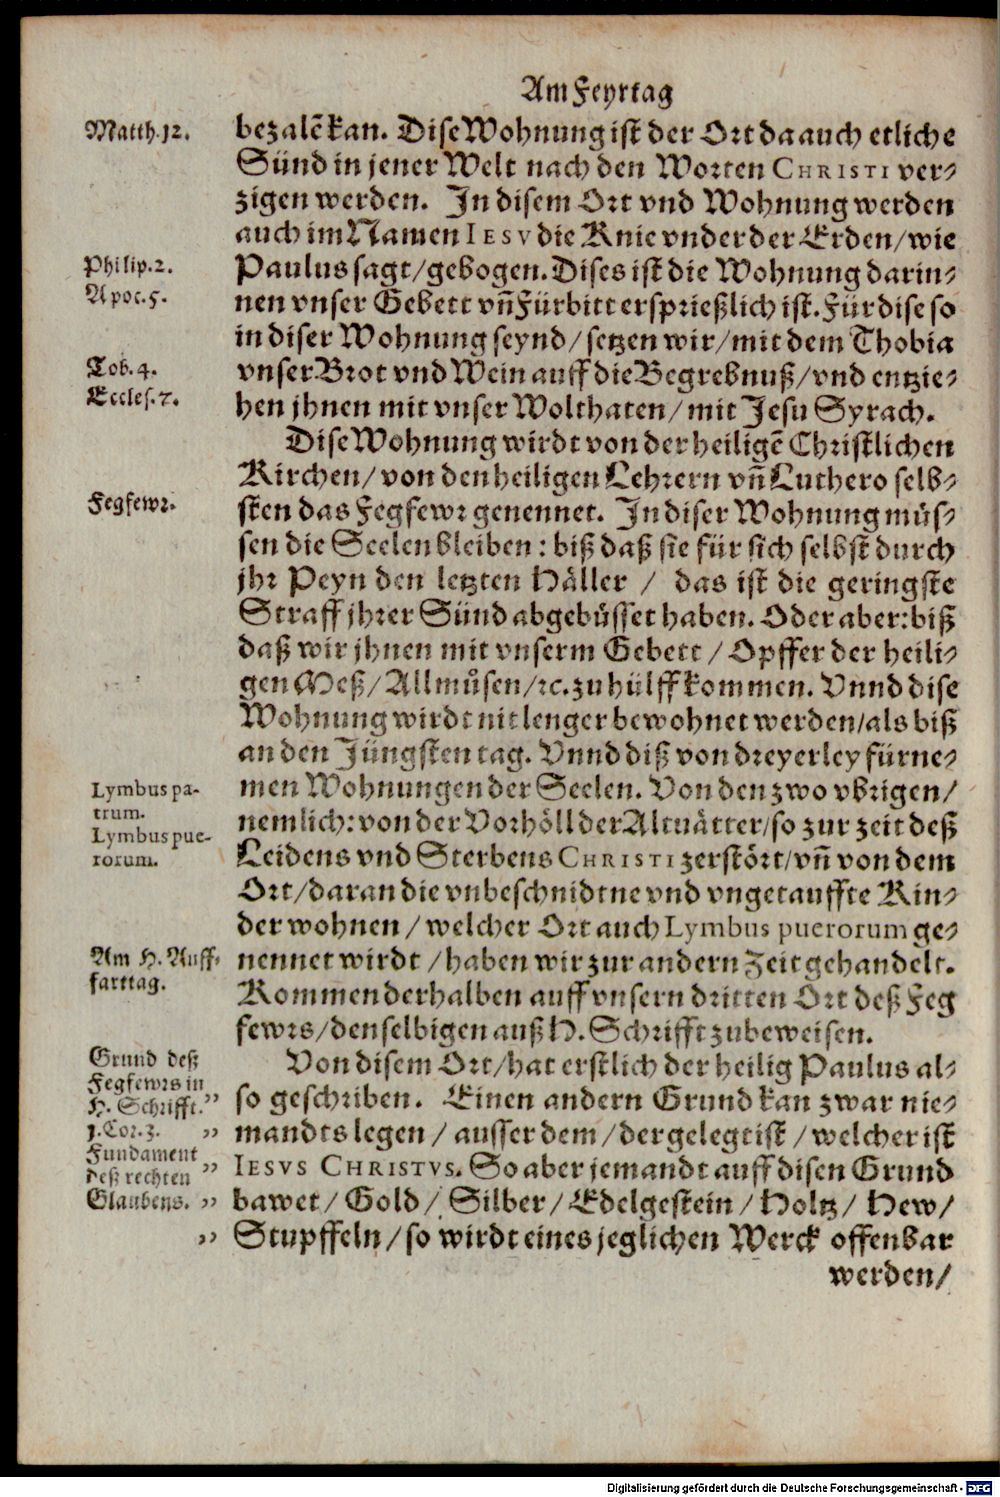 Am Feyrtag
Matth. 12.
bezalẽ kan. Dise Wohnung ist der Ort da auch etliche
Sünd in jener Welt nach den Worten CHRISTI ver-
zigen werden. In disem Ort vnd Wohnung werden
auch im Namen IESV die Knie vnder der Erden/ wie
Philip. 2.
Paulus sagt/ gebogen. Dises ist die Wohnung darin-
Apoc. 5.
nen vnser Gebett vñ Fürbitt ersprießlich ist. Für dise so
in diser Wohnung seynd/ setzen wir/ mit dem Thobia
Tob. 4.
vnser Brot vnd Wein auff die Begrebnuß/ vnd entzie-
Eccles. 7.
hen jhnen mit vnser Wolthaten/ mit Jesu Syrach.
Dise Wohnung wirdt von der heiligẽ Christlichen
Kirchen/ von den heiligen Lehrern vñ Luthero selb-
Fegfewr.
sten das Fegfewr genennet. In diser Wohnung müs-
sen die Seelen bleiben: biß daß sie für sich selbst durch
jhr Peyn den letzten Häller / das ist die geringste
Straff jhrer Sünd abgebüsset haben. Oder aber: biß
daß wir jhnen mit vnserm Gebett/ Opffer der heili-
gen Meß/ Allmůsen/ ꝛc. zu hülff kommen. Vnnd dise
Wohnung wirdt nit lenger bewohnet werden/ als biß
an den Jüngsten tag. Vnnd diß von dreyerley fürne-
men Wohnungen der Seelen. Von den zwo vbrigen/
Lymbus pa-
trum.
nemlich: von der Vorhöll der Altuätter/ so zur zeit deß
Lymbus pue-
rorum.
Leidens vnd Sterbens CHRISTI zerstört/ vñ von dem
Ort/ daran die vnbeschnidtne vnd vngetauffte Kin-
der wohnen/ welcher Ort auch Lymbus puerorum ge-
Am H. Auff-
farttag.
nennet wirdt/ haben wir zur andern Zeit gehandelt.
Kommen derhalben auff vnsern dritten Ort deß Feg
fewrs/ denselbigen auß H. Schrifft zubeweisen.
Grund deß
Fegfewrs in
H. Schrifft.
Von disem Ort/ hat erstlich der heilig Paulus al-
so geschriben. Einen andern Grund kan zwar nie-
1. Cor. 3.
mandts legen/ ausser dem/ der gelegt ist/ welcher ist
Fundament
deß rechten
Glaubens.
IESVS CHRISTVS. So aber jemandt auff disen Grund
bawet/ Gold/ Silber/ Edelgestein/ Holtz/ Hew/
Stupffeln/ so wirdt eines jeglichen Werck offenbar
werden/
Digitalisierung gefördert durch die Deutsche Forschungsgemeinschaft - DFG